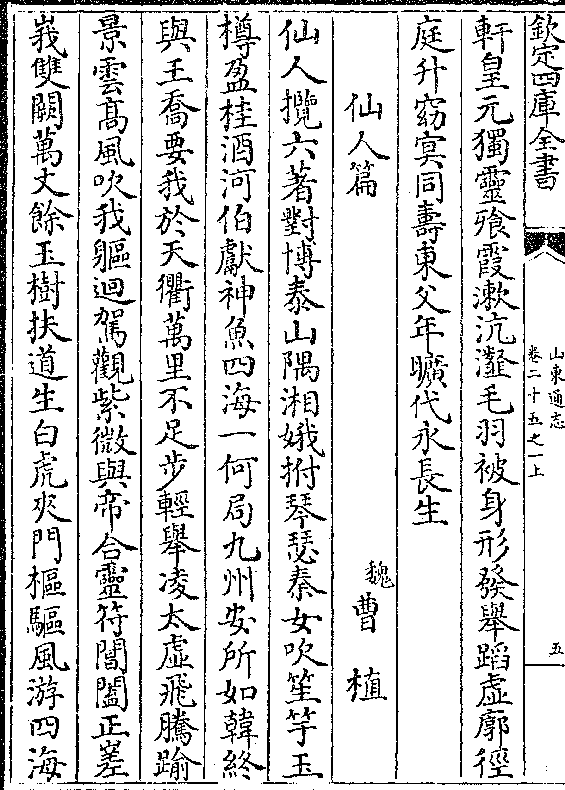 欽定四庫全書
山東通志
卷二十五之一上
五
軒皇元獨靈飱霞漱沆瀣毛羽被身形發舉蹈虛廓徑
庭升窈冥同壽東父年曠代永長生
仙人篇
魏曹植
仙人攬六著對博泰山隅湘娥拊琴瑟秦女吹笙竽玉
樽盈桂酒河伯獻神魚四海一何局九州安所如韓終
與王喬要我於天衢萬里不足步輕舉凌太虛飛騰踰
景雲髙風吹我軀迴駕觀紫微與帝合靈符閶闔正嵳
峩雙闕萬丈餘玉樹扶道生白虎夾門樞驅風游四海